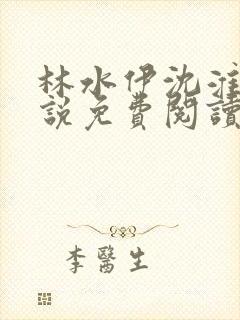 林水伊沈淮
說免費閱讀
李醫生